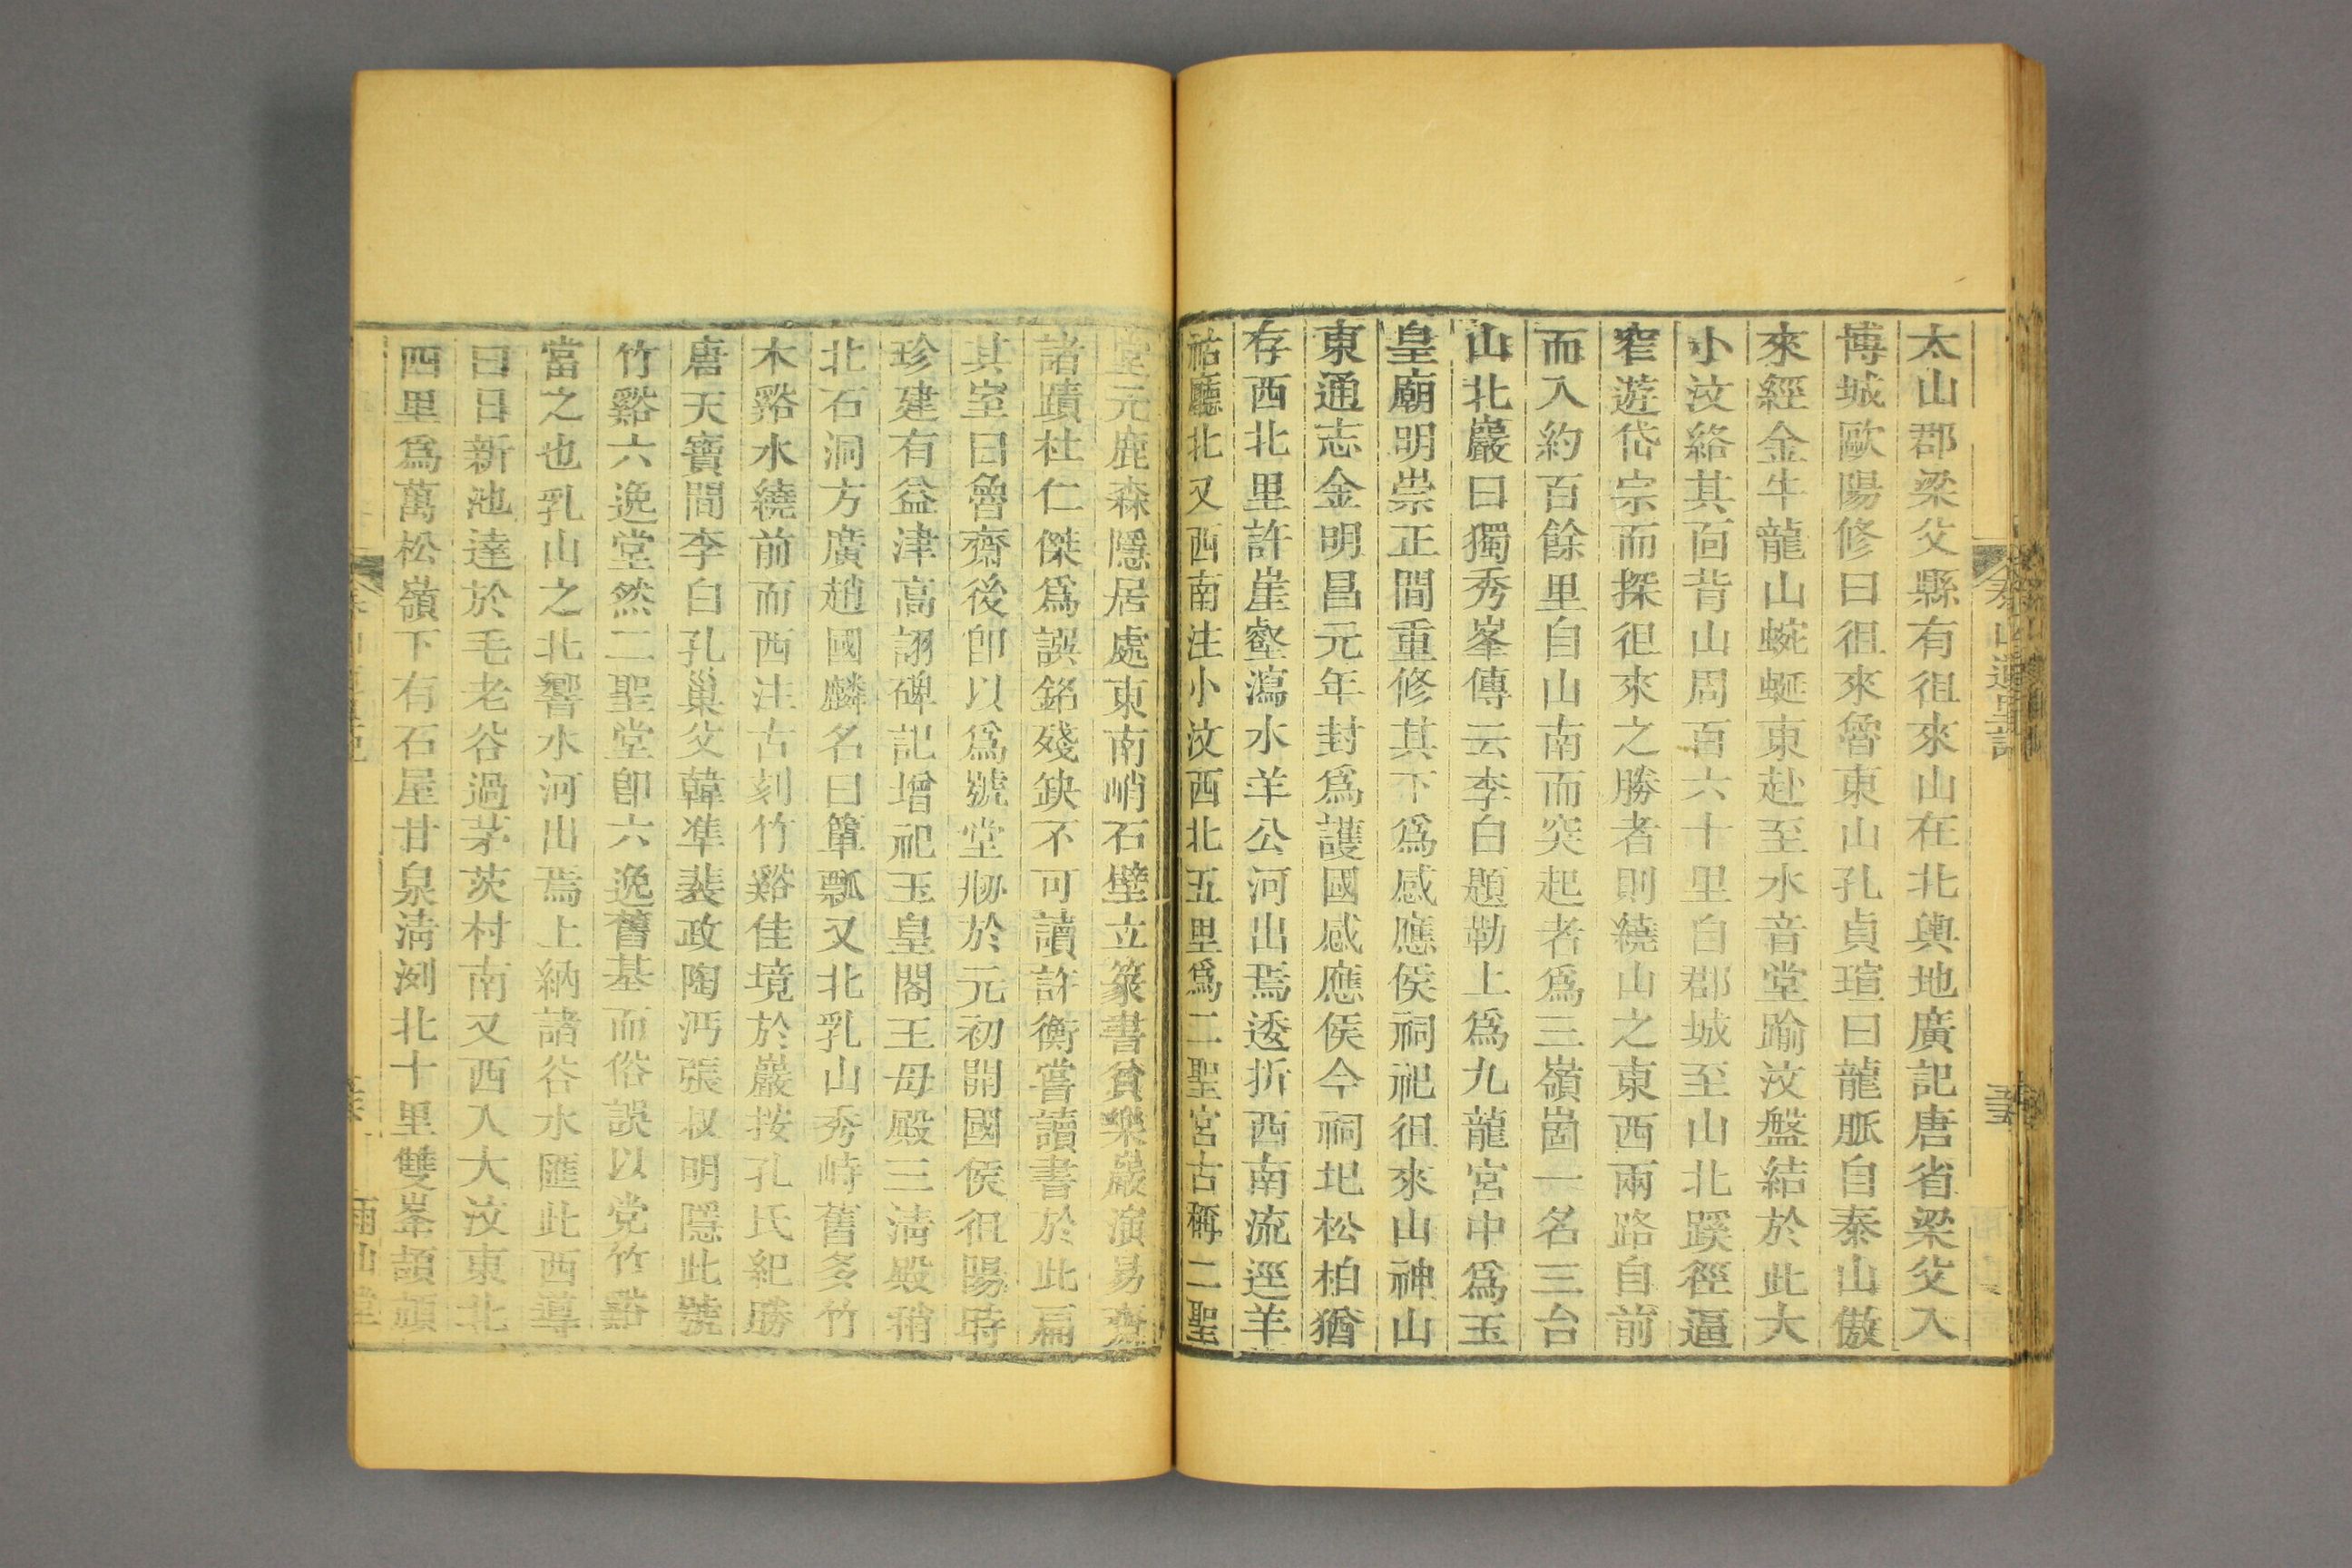 太山郡梁父縣有徂來山在北輿地廣記唐省梁父入
博城歐陽修曰徂來魯東山孔貞瑄曰龍脈自泰山傲
來經金牛龍山蜿蜒東赴至水音堂踰汶盤結於此大
小汶絡其面背山周百六十里自郡城至山北蹊徑逼
窄遊岱宗而探徂來之勝者則繞山之東西兩路自前
而入約百餘里自山南而突起者爲三嶺崮一名三台
山北巖曰獨秀峯傳云李白題勒上爲九龍宮中爲玉
皇廟明崇正間重修其下爲感應侯祠祀徂來山神山
東通志金明昌元年封爲護國感應侯今祠圯松柏猶
存西北里許崖壑瀉水羊公河出焉逶折西南流逕羊
祜廳北又西南注小汶西北五里爲二聖宮古稱二聖
堂元鹿森隱居處東南峭石壁立篆書貧樂巖演易齋
諸蹟杜仁傑爲誤銘殘缺不可讀許衡嘗讀書於此扁
其室曰魯齋後卽以爲號堂刱於元初開國侯徂陽時
珍建有益津高詡碑記增祀玉皇閣王母殿三淸殿稍
北石洞方廣趙國麟名曰簞瓢又北乳山秀峙舊多竹
木谿水繞前而西注古刻竹谿佳境於巖按孔氏紀勝
唐天寶間李白孔巢父韓準裴政陶沔張叔明隱此號
竹谿六逸堂然二聖堂卽六逸舊基而俗誤以党竹谿
當之也乳山之北響水河出焉上納諸谷水匯此西導
曰日新池達於毛老谷過茅茨村南又西入大汶東北
四里爲萬松嶺下有石屋甘泉淸洌北十里雙峯頡頏
泰山道里記